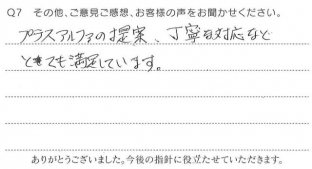 Q7 その他、ご意見ご感想、お客様の声をお聞かせください。
プラスアルファの提案、丁寧な対応など
とても満足しています。
ありがとうございました。今後の指針に役立たせていただきます。